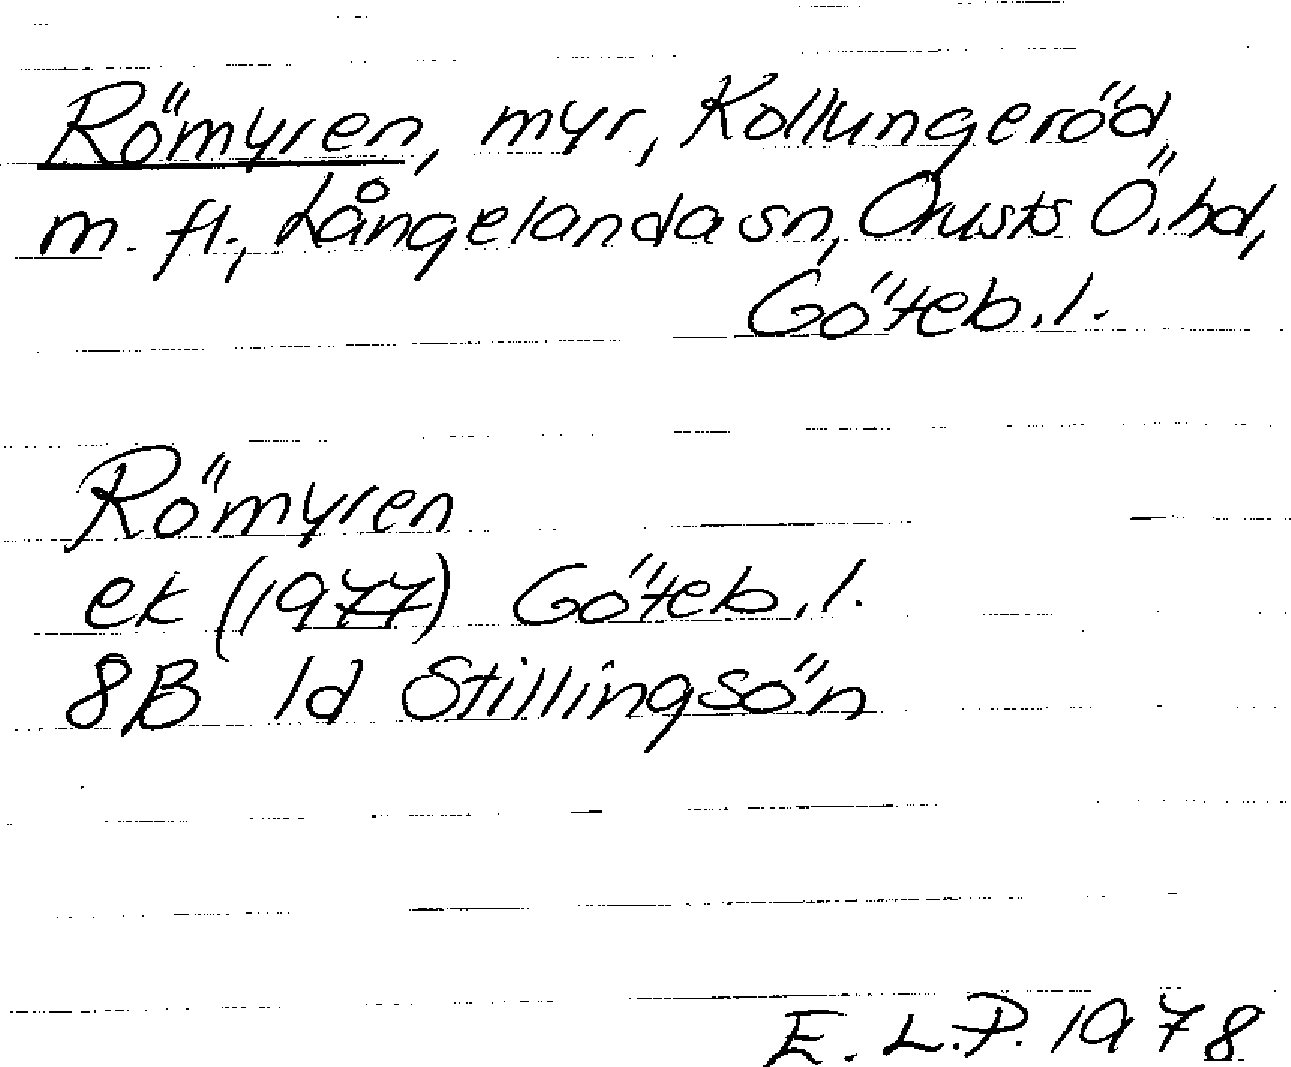 Römyren, myr, Kollungeröd
m. fl., Långelanda sn, Orusts Ö. hd,
Göteb. l.
Römyren
ek (1977) Göteb. l.
8B 1d Stillingsön
E. L.P. 1978